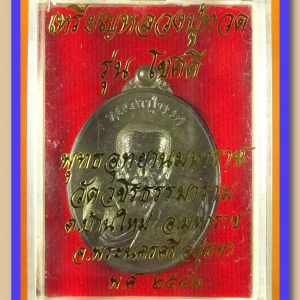 เหรียญหลวงปู่ทวด
รุ่น โชคดี
พุทธอุทยานมหาราช
วัดวชิรธรรมาราม
ต.บ้านใหม่ อ.มหาราช
จ.พระนครศรีอยุธยา
พ.ศ. ๒๕๔๑